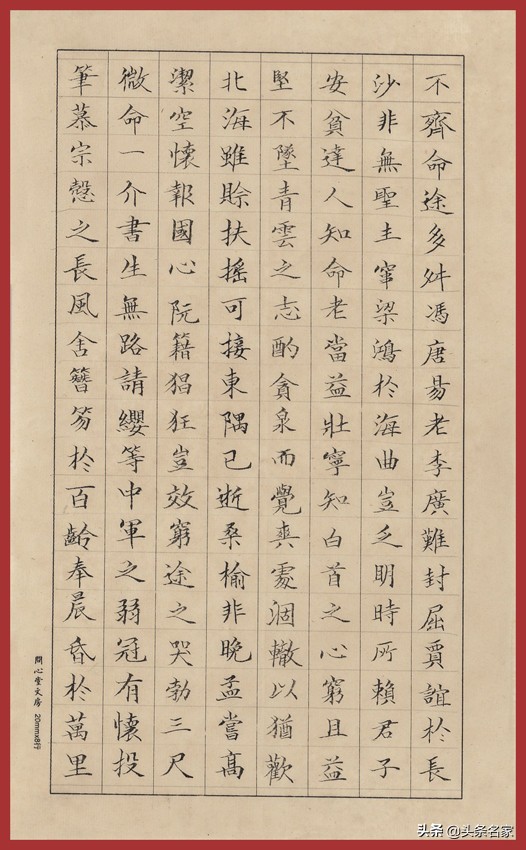 不齊命途多舛馮唐易老李廣難封屈賈誼於長
沙非無聖主竄梁鴻於海曲豈乏明時所賴君子
安貧達人知命老當益壯寧知白首之心窮且益
堅不墜青雲之志酌貪泉而覺爽處涸轍以猶歡
北海雖賒扶搖可接東隅已逝桑榆非晚孟嘗高
潔空懷報國心阮籍猖狂豈效窮途之哭勃三尺
微命一介書生無路請纓等中軍之弱冠有懷投
筆慕宗慤之長風舍簪笏於百齡奉晨昏於萬里
問心堂文房 20mmx8行
头条 @头条名家